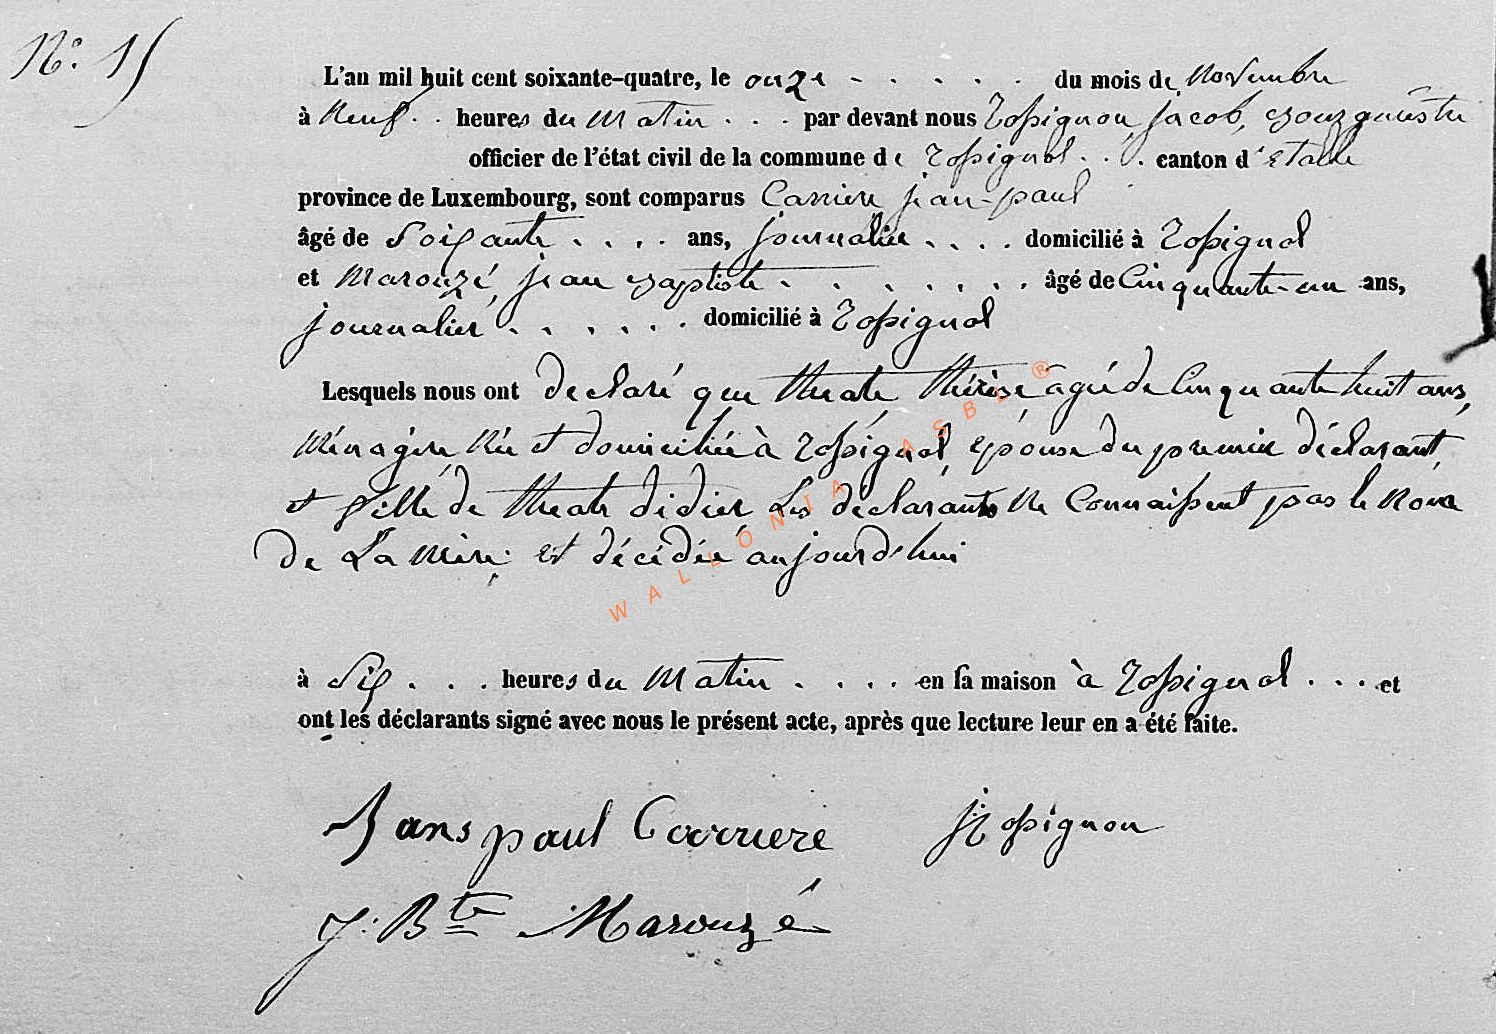 N° 15
L'an mil huit cent soixante-quatre, le onze - . . . . . du mois de Novembre
à Neuf . . heures du Matin . . . par devant nous Rossignon, Jacob, Bourgmestre
officier de l'état civil de la commune de Rossignol . . . canton d'Etalle
province de Luxembourg, sont comparus Carriere jean-paul
âgé de Soixante . . . . ans, journalier . . . . domicilié à Rossignol
et Marouzé, jean Baptiste . . . . . . . âgé de Cinquante-un ans,
journalier . . . . . . domicilié à Rossignol
Lesquels nous ont déclaré que theate thérèse agée de Cinquante huit ans,
Ménagère Née et domiciliée à Rossignol, épouse du premier déclarant,
et fille de theate didier Les déclarants Ne Connaissent pas le Nom
de La Mère. est décédée aujourd'hui
à Six . . . heures du Matin . . . . en sa maison à Rossignol . . . et
ont les déclarants signé avec nous le présent acte, après que lecture leur en a été faite.
Jans paul Carriere JRossignon
J. Bte Marouzé
WALLONIA ASBL ®